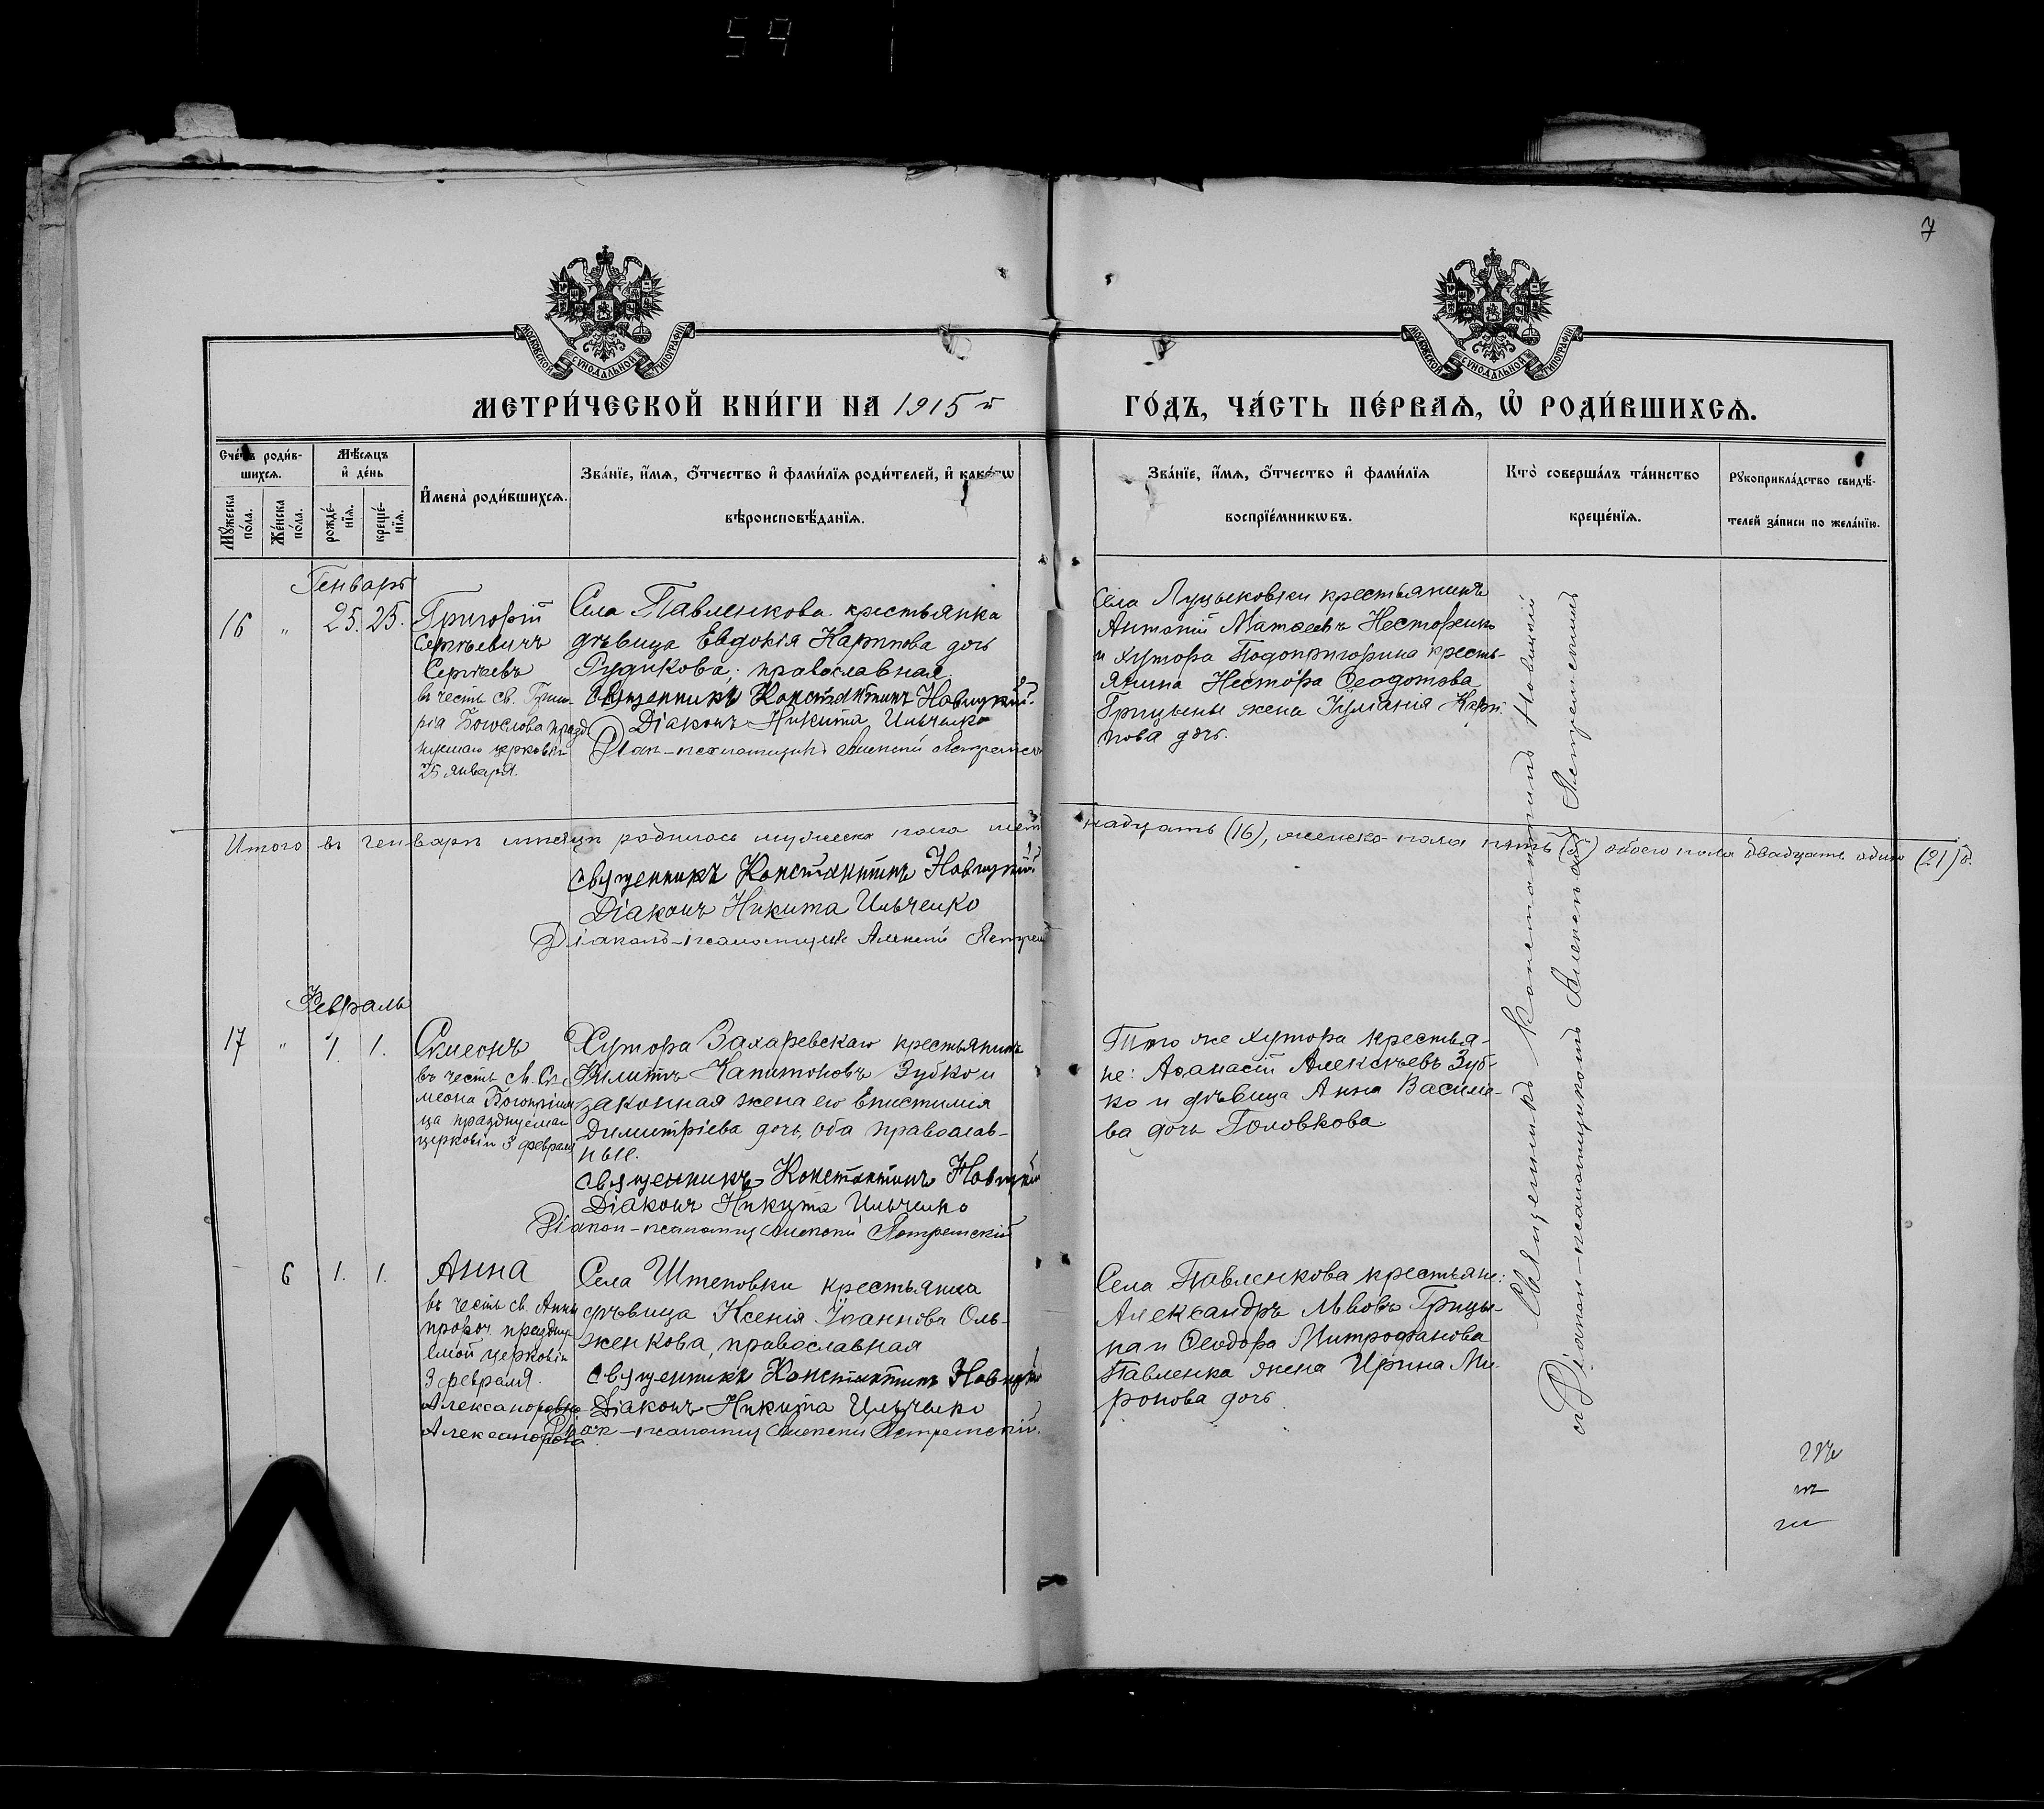 59
7
МОСКОВСКОЙ СУНОДАЛЬНОЙ ТИПОГРАФІИ
МОСКОВСКОЙ СУНОДАЛЬНОЙ ТИПОГРАФІИ
МЕТРИ́ЧЕСКОЙ КНИ́ГИ НА 1915 й
ГО́ДЪ, ЧА́СТЬ ПЕ́РВАѦ, Ѡ҆ РОДИ́ВШИХСѦ.
Сче́тъ роди́в-
шихсѧ.
Мѣ́сѧцъ
и҆ де́нь
Мꙋ́жеска
по́ла.
Же́нска
по́ла.
рожде́-
нїѧ.
креще́-
нїѧ.
И҆мена̀ роди́вшихсѧ.
Зва́нїе, и҆́мѧ, ѻ҆́тчество и҆ фами́лїѧ роди́телей, и҆ како́гѡ
вѣроисповѣ́данїѧ.
Зва́нїе, и҆́мѧ, ѻ҆́тчество и҆ фами́лїѧ
воспрїе́мникѡвъ.
Кто̀ соверша́лъ та́инство
креще́нїѧ.
Рꙋкоприкла́дство свидѣ́-
телей за́писи по жела́нїю.
Генварь
16 " 25. 25.
Григорій
Сергѣевичъ
Сергѣевъ
въ честь св. Григо-
рія Богослова празд
нуемаго церковію
25 января.
Села Павленкова крестьянка
дѣвица Евдокія Карпова дочь
Рудикова; православная.
Священникъ Константинъ Новицкій.
Діаконъ Никита Ильченко
Діак-псаломщикъ Алексій Ястремск
Села Луцыковки крестьянинъ
Антоній Матѳеевъ Несторенко
и хутора Подопригорина кресть-
янина Нестора Ѳеодотова
Грицыны жена Іуліанія Карп-
пова дочь.
Итого въ генварѣ мѣсяцѣ родилось мужеска пола шест
надцать (16), женска пола пять (5) обоего пола двадцать одно (21) д.
Священникъ Константинъ Новицкій
Діаконъ Никита Ильченко
Діаконъ-псаломщикъ Алексій Ястрем
Февраль
17 " 1. 1.
Симеонъ
въ честь св. Си-
меона Богопріим
ца празднуемаго
церковію 3 февраля
Хутора Захаревскаго крестьянинъ
Филиппъ Капитоновъ Зубко и
законная жена его Епистимія
Димитріева дочь, оба православ-
ные.
Священникъ Константинъ Новицкій
Діаконъ Никита Ильченко
Діакон-псаломщ Алексій Ястремскій
Того же хутора крестья-
не: Аѳанасій Алексѣевъ Зуб-
ко и дѣвица Анна Василье-
ва дочь Головкова
6 1. 1.
Анна
въ честь св. Анны
пророч. праздну
емой церковію
3 февраля.
Александровна
Александрова
Села Штеповки крестьянка
дѣвица Ксенія Іоаннова Оль-
женкова, православная
Священникъ Константинъ Новицкій
Діаконъ Никита Ильченко
Діак-псаломщ Алексій Ястремскій.
Села Павленкова крестьяне:
Александръ Львовъ Грицы-
на и Ѳеодора Митрофанова
Павленка жена Ирина Ми-
ронова дочь
Священникъ Константинъ Новицкій
Діакон-псаломщикъ Алексій Ястремскій